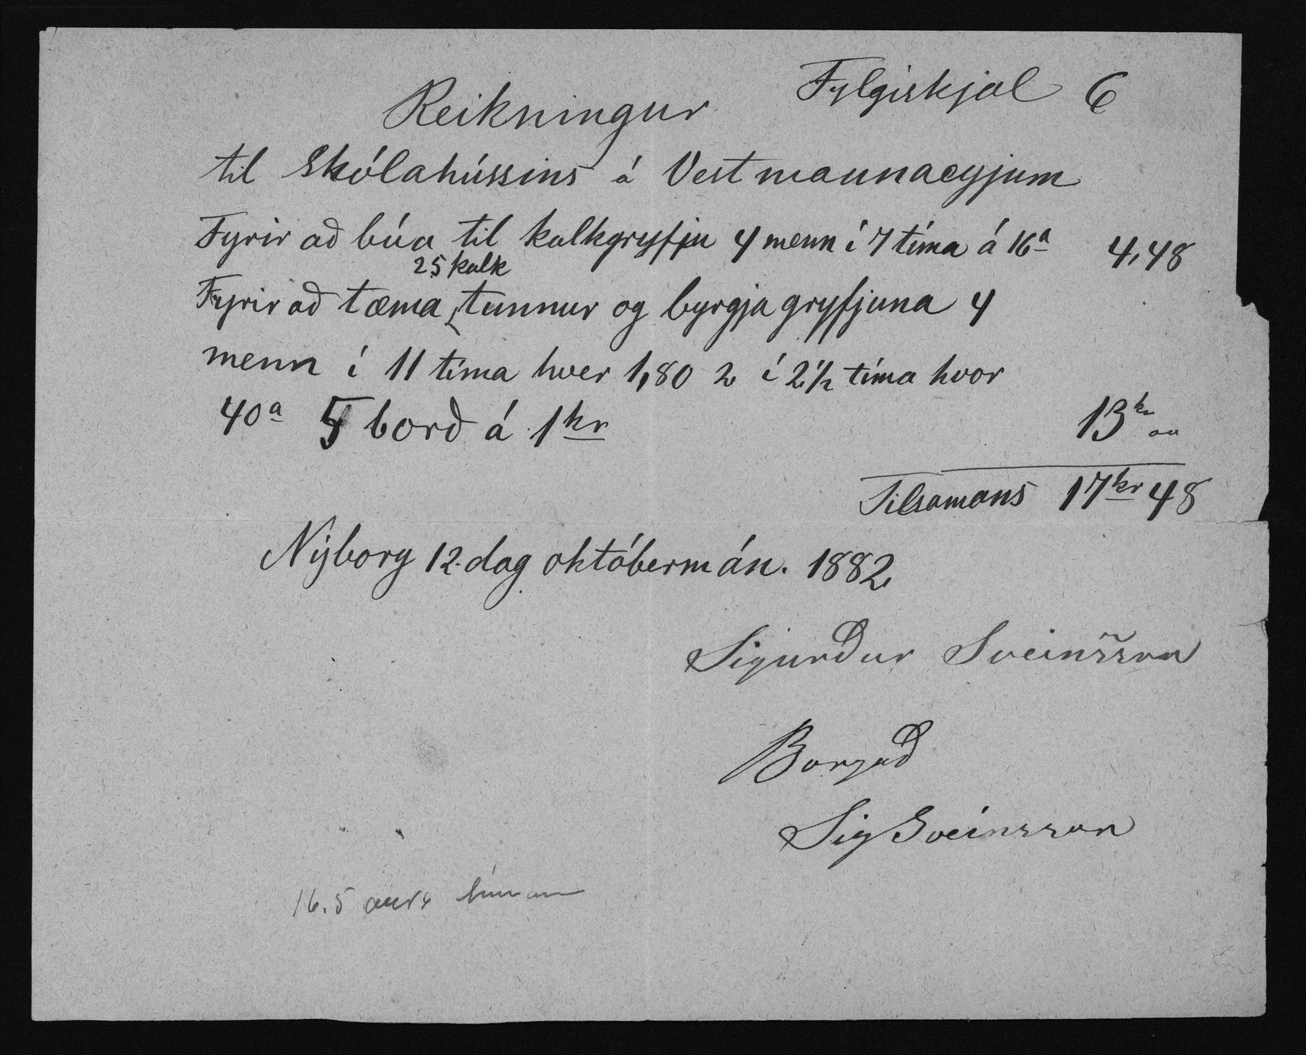 Fylgiskjal 6
Reikningur
til Skólahússins á Vestmannaeyjum
Fyrir að búa til kalkgryfju 4 menn í 7 tíma á 16a 4,48
25 kalk
Fyrir að tæma tunnur og byrgja gryfjuna 4
menn í 11 tíma hver 1,80 2 í 2½ tíma hvor
40a 5 borð á 1kr 13kr „„
Tilsamans 17kr 48
Nýborg 12. dag októbermán. 1882
Sigurður Sveinsson
Borgað
Sig Sveinsson
16.5 aura tíminn